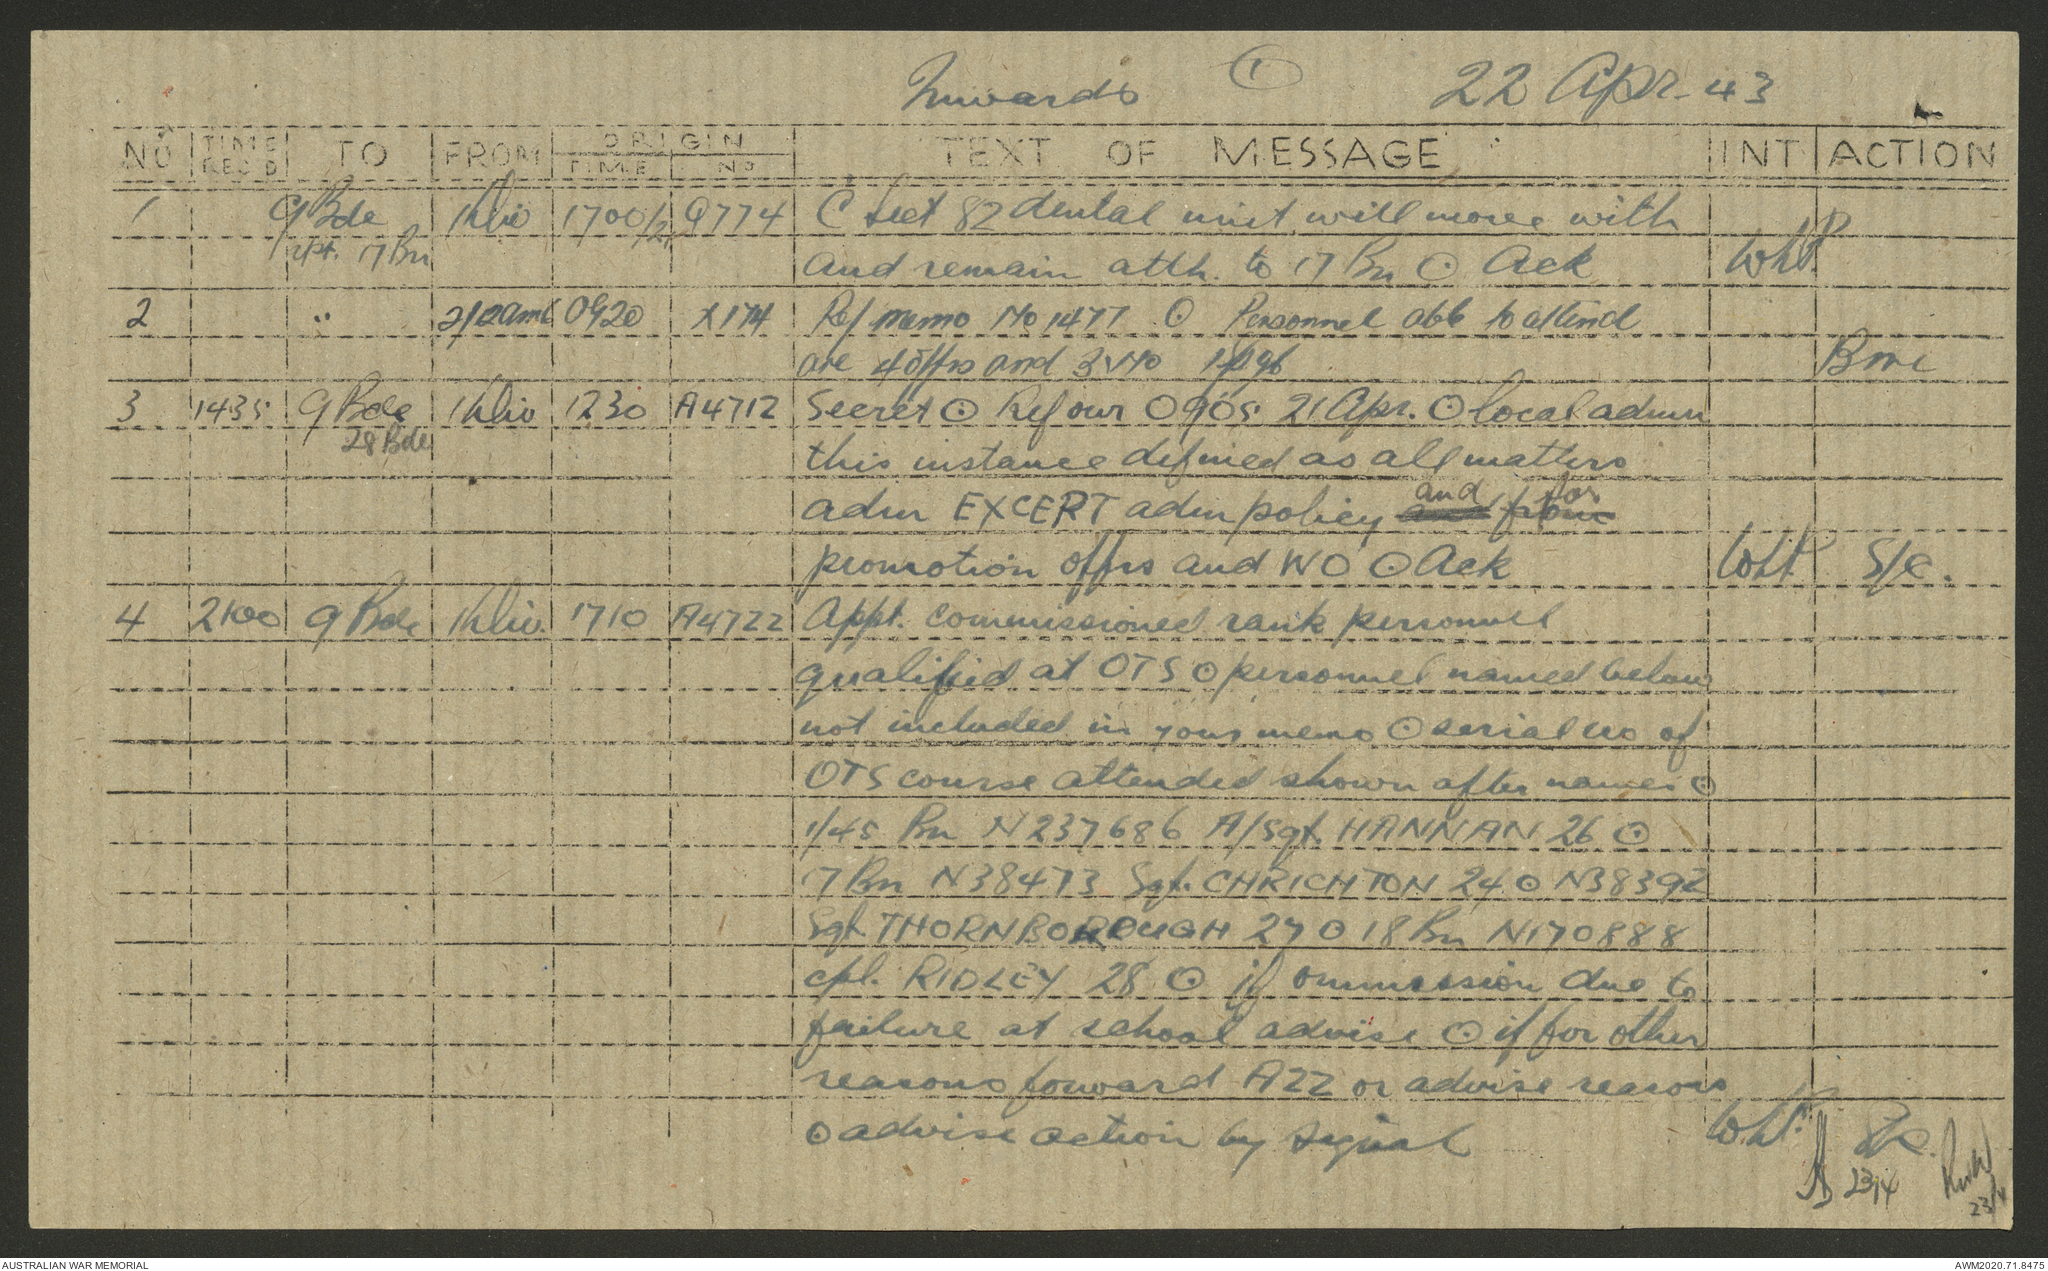 Inwards 1 22 Apr. 43
NO TIME REC'D TO FROM ORIGIN TIME NO TEXT OF MESSAGE INT ACTION
1 9 Bde 1 Div 1700/21 Q774 C Sect 82 dental unit will move with
rpt. 17 Bn and remain atth. to 17 Bn ⊙ Ack WhP.
2 " 2/12 Amb 0920 X174 Ref memo No 1477 ⊙ Personnel abb to attend
are 4 offrs and 3 Bmc
3 1435 9 Bde 1 Div 1230 A4712 Secret ⊙ Ref our O905 21 Apr. ⊙ local adm
28 Bde this instance defined as all matters
adm EXCERT adm policy and for
promotion offrs and WO ⊙ Ack WhP. S/c.
4 2100 9 Bde 1 Div. 1710 A4722 Appt. commissioned rank personnel
qualified at OTS ⊙ personnel named below
not included in your memo ⊙ serial no of
OTS course attended shown after names ⊙
1/45 Bn N237686 A/Sgt. HANNAN 26 ⊙
17 Bn N38473 Sgt. CHRICHTON 24 ⊙ N38392
Sgt. THORNBOROUGH 27 ⊙ 18 Bn N170888
cpl. RIDLEY 28 ⊙ if ommission due to
failure at school advise ⊙ if for other
reasons forward A22 or advise reasons
⊙ advise action by signal WhP. S/c.
23/4
23/4
AUSTRALIAN WAR MEMORIAL AWM2020.71.8475